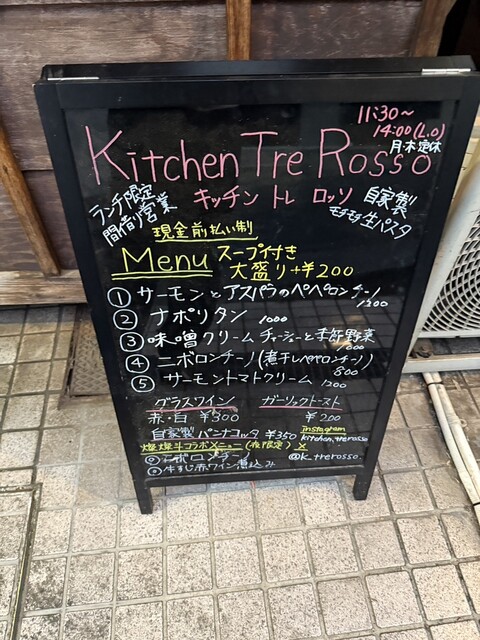 11:30〜
14:00(L.o)
月・木定休
Kitchen Tre Rosso
ランチ限定
間借り営業
キッチン トレ ロッソ
自家製
モチモチ生パスタ
現金前払い制
Menu スープ付き
大盛り+¥200
① サーモンとアスパラのペペロンチーノ
1200
② ナポリタン 1000
③ 味噌クリーム チャーシューと季節野菜
④ ニボロンチーノ(煮干しペペロンチーノ)
800
⑤ サーモントマトクリーム 1200
グラスワイン
赤・白 ¥300
ガーリックトースト
¥200
自家製パンナコッタ ¥350
instagram
kitchen.trerosso
コラボメニュー(夜限定)
X
@k_trerosso
ニボロンチーノ
牛すじ赤ワイン煮込み